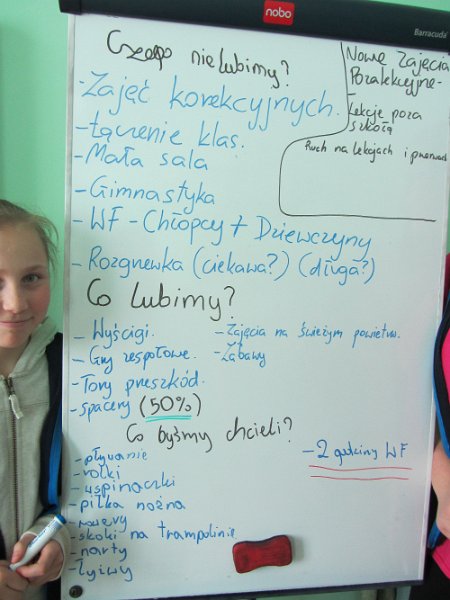 nobo
Barracuda
Czego nie lubimy?
- Zajęć korekcyjnych.
- Łączenie klas.
- Mała sala
- Gimnastyka
- WF - Chłopcy + Dziewczyny
- Rozgnewka (ciekawa?) (długa?)
Nowe Zajęcia
Pozalekcyjne -
- Lekcje poza
szkołą
Ruch na lekcjach i przerwach
Co lubimy?
- Wyścigi.
- Gry zespołowe.
- Tory preszkód.
- spacery (50%)
- Zajęcia na świeżym powietrzu.
- Zabawy
Co byśmy chcieli?
- pływanie
- rolki
- wspinaczki
- piłka nożna
- rowery
- skoki na trampolinie
- narty
- łyżwy
- 2 godziny WF